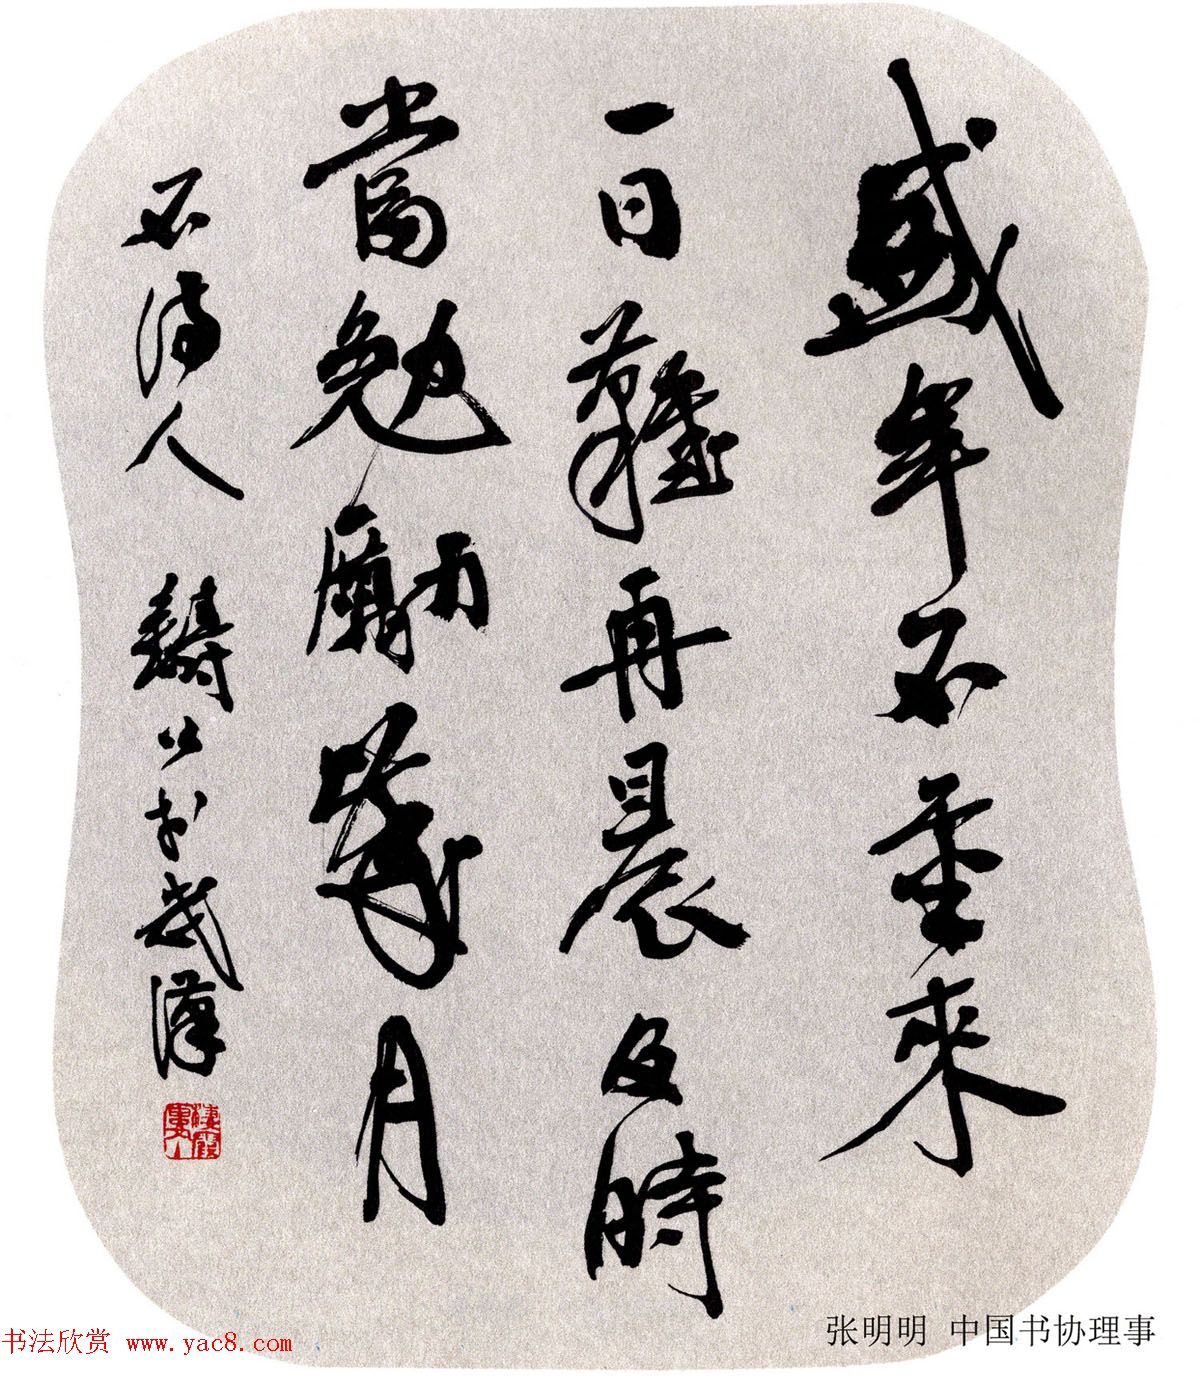 盛年不重來
一日難再晨及時
當勉勵歲月
不待人 鑄公於武漢
张明明 中国书协理事
书法欣赏 www.yac8.com